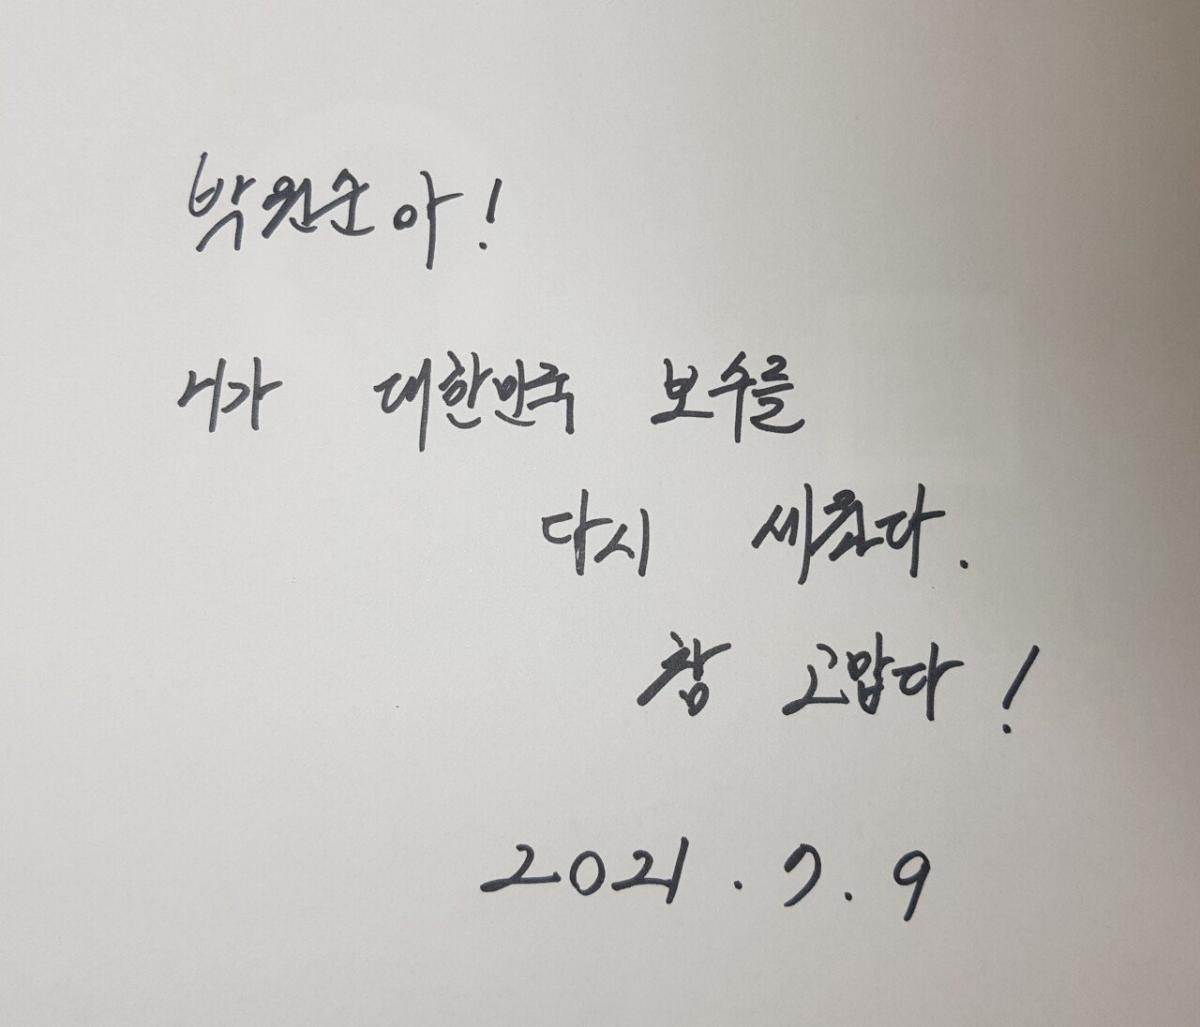 박원순아!
니가 대한민국 보수를
다시 세웠다.
참 고맙다!
2021.7.9